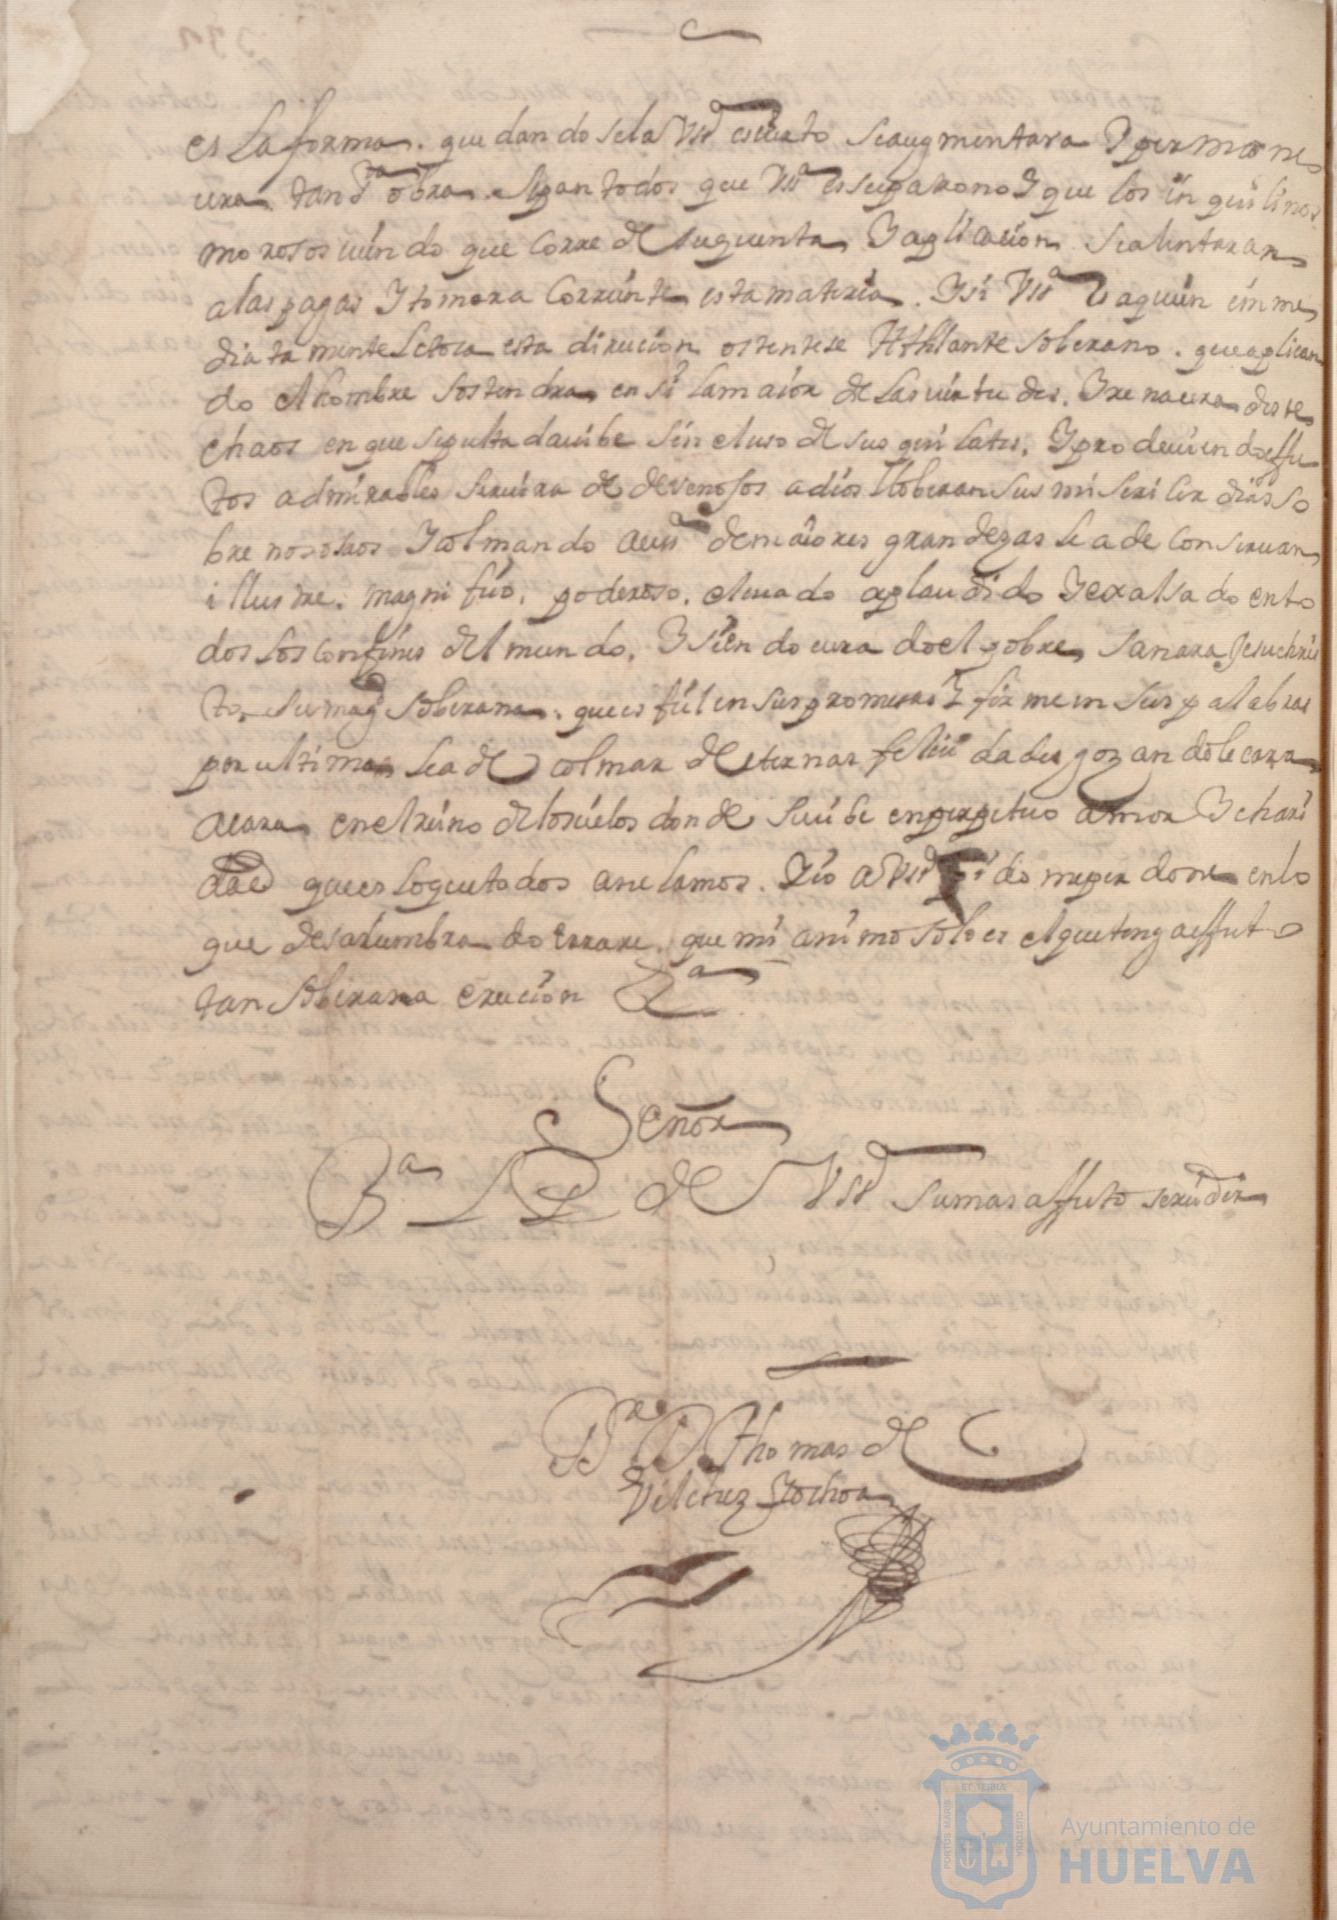 es la forma. que dandosela VSª es cierto se augmentara Y permane
cera tan Sta obra. Sepan todos que VSª es su patrono Y que los inquilinos
morosos viendo que corre de su quenta, Y aplicacion se alentaran
a las pagas Y tomara corriente esta materia. Y si VSª es a quien inme
diatamente le toca esta direccion ostentese Athlante soberano. que aplican
do el hombre sostendra en si la maior de las virtudes. Y renacera de este
chaos en que sepultada vibe sin el uso de sus quilates. Y produciendo effe
tos admirables servira de
a dios lloberan sus misericordias so
bre nosotros Y colmando a VSª de maiores grandezas le a de conservar
illustre. magnifico. poderoso. elevado aplaudido Y exalsado en to
dos los confines del mundo. Y siendo curado el pobre, sanara Jesuchris
to, su magd soberana. que es fiel en sus promesas Y firme en sus palabras
por ultimo le a de colmar de eternas felicidades gozandole cara
a cara en el reino de los cielos donde se vibe en perpetuo amor Y chari
dad que es lo que todos anelamos. Yio a VSª pido me perdone en lo
que desalumbrado errare. que mi animo solo es el que tenga effecto
tan soberana ereccion Va
Señor
Ba L P de VSª su mas affecto servidor
Br D Thomas de
Vilchez Y ochoa
PORTUS MARIS ET TERRAE CUSTODIA
Ayuntamiento de
HUELVA